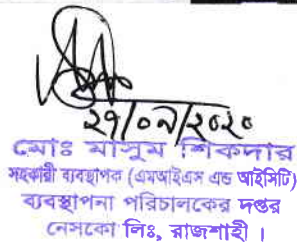 ২৭/০৯/২০২০
মোঃ মাসুম শিকদার
সহকারী ব্যবস্থাপক (এমআইএস এন্ড আইসিটি)
ব্যবস্থাপনা পরিচালকের দপ্তর
নেসকো লিঃ, রাজশাহী।